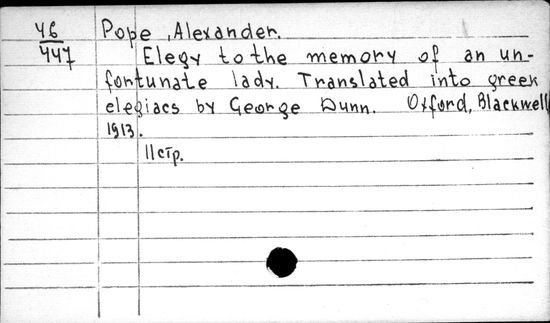 46 Pope, Alexander.
447 Elegy to the memory of an un-
fortunate lady. Translated into greek
elegiacs by George Dunn. Oxford, Blackwell
1913.
11 стр.